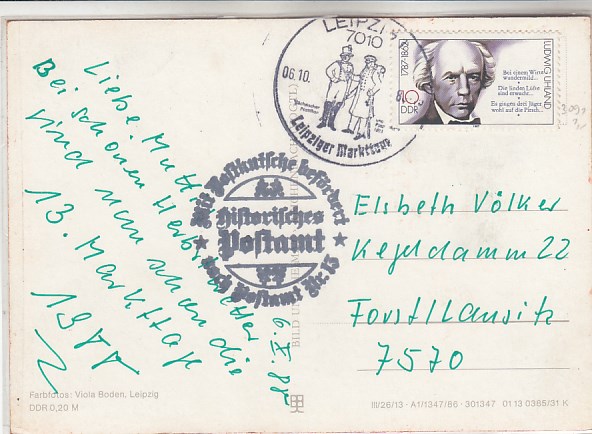 Liebe Mutti
Bei schönen Herbstwetter
sind nun schon die
13. Markttage
1988
6.X.88
LEIPZIG
7010
06.10.
Leipziger Markttage
LUDWIG UHLAND
1787-1862
Bei einem Wirte
wundermild...
Die linden Lüfte
sind erwacht...
Es gingen drei Jäger
wohl auf die Pirsch...
10
DDR
Mit Postkutsche befördert
historisches
Postamt
nach Postamt Nr. 13
Elsbeth Völker
Kegeldamm 22
Forst/Lausitz
7570
Farbfotos: Viola Boden, Leipzig
DDR 0,20 M
III/26/13 · A1/1347/86 · 301347 01 13 0365/31 K